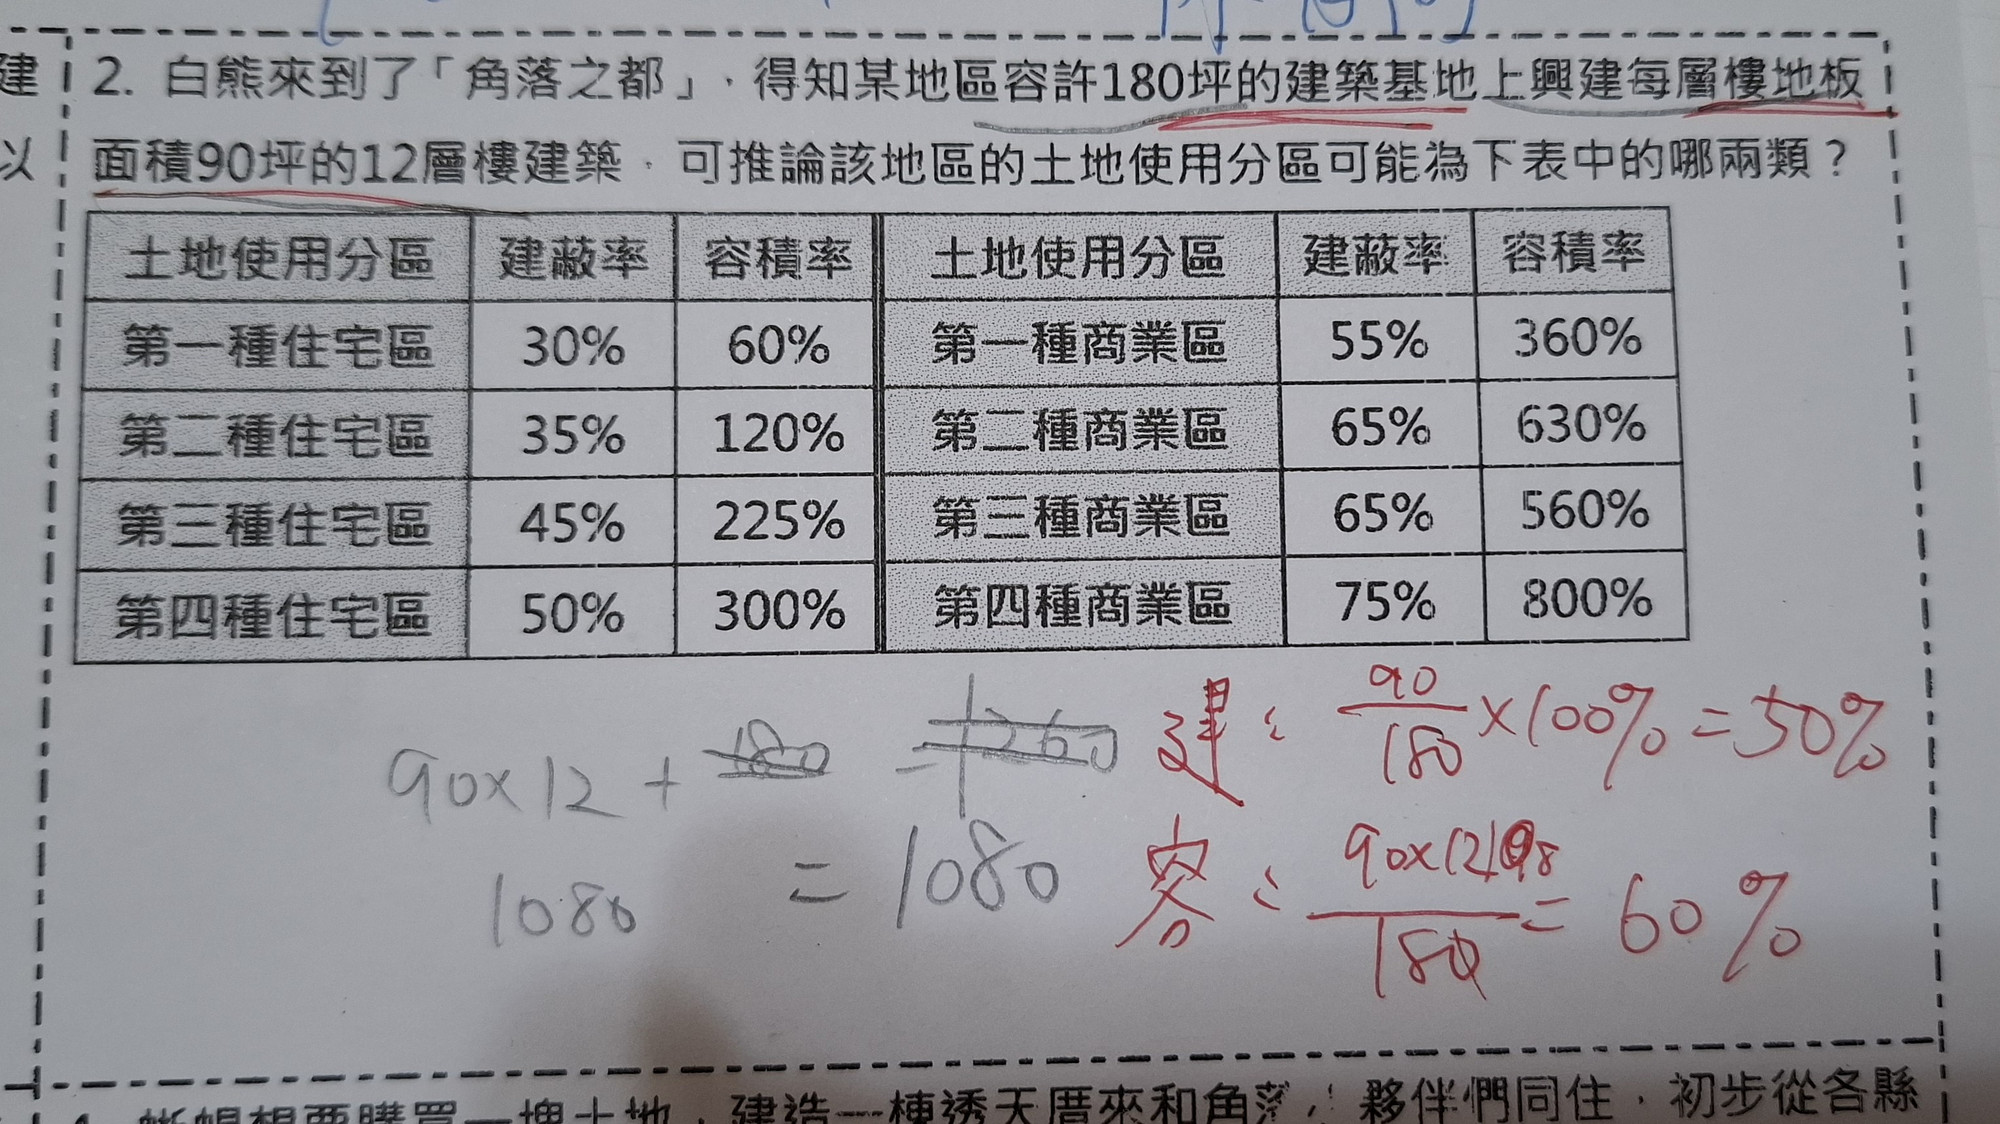 建
2. 白熊來到了「角落之都」，得知某地區容許180坪的建築基地上興建每層樓地板
以
面積90坪的12層樓建築，可推論該地區的土地使用分區可能為下表中的哪兩類？
土地使用分區 建蔽率 容積率 土地使用分區 建蔽率 容積率
第一種住宅區 30% 60% 第一種商業區 55% 360%
第二種住宅區 35% 120% 第二種商業區 65% 630%
第三種住宅區 45% 225% 第三種商業區 65% 560%
第四種住宅區 50% 300% 第四種商業區 75% 800%
90×12 + 180 = 1260
= 1080
1080
建: 90/180 ×100% = 50%
容: 90×12/180 = 60%
想要購買一塊土地，建造一棟透天厝來和角落 夥伴們同住，初步從各縣